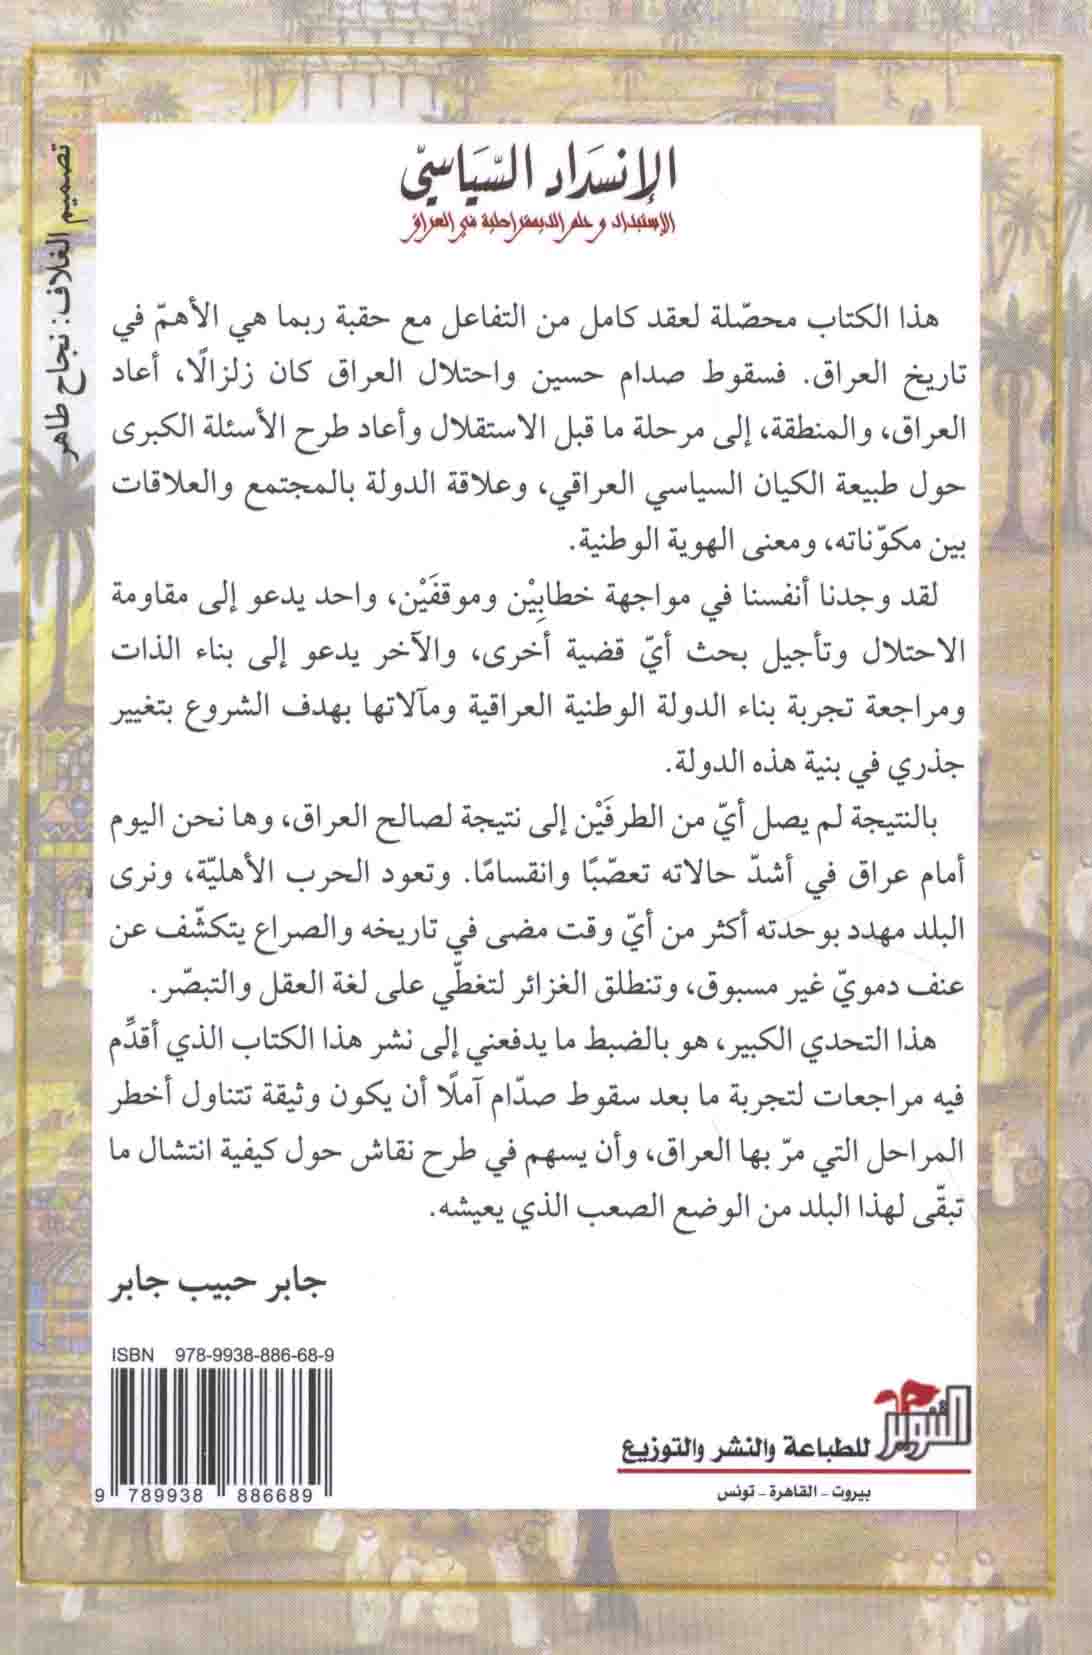 الإنسَداد السّيَاسيّ
الإستبداد وحلم الديمقراطية في العراق
هذا الكتاب محصّلة لعقد كامل من التفاعل مع حقبة ربما هي الأهمّ في
تاريخ العراق. فسقوط صدام حسين واحتلال العراق كان زلزالًا، أعاد
العراق، والمنطقة، إلى مرحلة ما قبل الاستقلال وأعاد طرح الأسئلة الكبرى
حول طبيعة الكيان السياسي العراقي، وعلاقة الدولة بالمجتمع والعلاقات
بين مكوّناته، ومعنى الهوية الوطنية.
لقد وجدنا أنفسنا في مواجهة خطابِيْن وموقفَيْن، واحد يدعو إلى مقاومة
الاحتلال وتأجيل بحث أيّ قضية أخرى، والآخر يدعو إلى بناء الذات
ومراجعة تجربة بناء الدولة الوطنية العراقية ومآلاتها بهدف الشروع بتغيير
جذري في بنية هذه الدولة.
بالنتيجة لم يصل أيّ من الطرفَيْن إلى نتيجة لصالح العراق، وها نحن اليوم
أمام عراق في أشدّ حالاته تعصّبًا وانقسامًا. وتعود الحرب الأهليّة، ونرى
البلد مهدد بوحدته أكثر من أيّ وقت مضى في تاريخه والصراع يتكشّف عن
عنف دمويّ غير مسبوق، وتنطلق الغزائر لتغطّي على لغة العقل والتبصّر.
هذا التحدي الكبير، هو بالضبط ما يدفعني إلى نشر هذا الكتاب الذي أقدِّم
فيه مراجعات لتجربة ما بعد سقوط صدّام آملًا أن يكون وثيقة تتناول أخطر
المراحل التي مرّ بها العراق، وأن يسهم في طرح نقاش حول كيفية انتشال ما
تبقّى لهذا البلد من الوضع الصعب الذي يعيشه.
جابر حبيب جابر
ISBN 978-9938-886-68-9
9 789938 886689
التنوير للطباعة والنشر والتوزيع
بيروت - القاهرة - تونس
تصميم الغلاف: نجاح طاهر